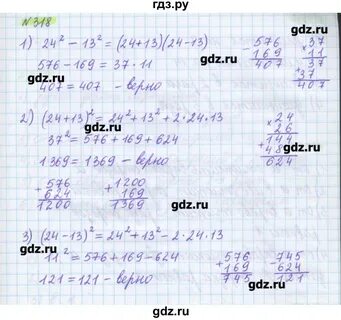 гдз.ру
№ 318
1) 24² - 13² = (24+13)(24-13)
576 - 169 = 37 · 11
407 = 407 - верно
- 576
169
407
× 37
11
37
+ 37
407
2) (24+13)² = 24² + 13² + 2·24·13
37² = 576 + 169 + 624
1369 = 1369 - верно
× 24
26
+ 144
48
624
+ 576
624
1200
+ 1200
169
1369
3) (24-13)² = 24² + 13² - 2·24·13
11² = 576 + 169 - 624
121 = 121 - верно
+ 576
169
745
- 745
624
121
гдз.ру
гдз.ру
гдз.ру
гдз.ру